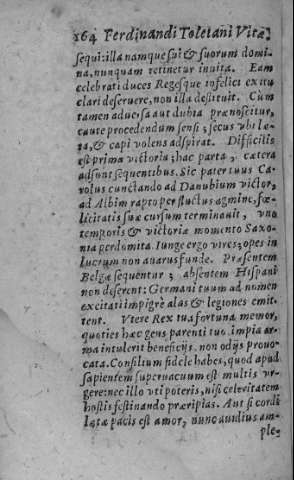 164 Ferdinandi Toletani Vitæ
sequi: illa namque sui & suorum domi-
na, nunquam retinetur inuita. Eam
celebrati duces Regesque infelici exitu
clari deseruere, non illa destituit. Cùm
tamen aduersa aut dubia prænoscitur,
cautè procedendum sensi; secus vbi læ-
ta, & capi volens adspirat. Difficilis
est prima victoria; hac parta, cætera
adsunt sequentibus. Sic pater tuus Ca-
rolus cunctando ad Danubium victor,
ad Albim rapto per fluctus agmine, fœ-
licitatis suæ cursum terminauit, vno
temporis & victoriæ momento Saxo-
nia perdomita. Iunge ergo vires; opes in
lucrum non auarus funde. Præsentem
Belgæ sequentur; absentem Hispani
non deserent: Germani tuum ad nomen
exciti impigrè alas & legiones emit-
tent. Vtere Rex tua fortuna memor,
quoties hæc gens parenti tuo impia ar-
ma intulerit beneficijs, non odijs prouo-
cata. Consilium fidele habes, quod apud
sapientem superuacuum est multis vr-
gere: nec illo vti poteris, nisi celeritatem
hostis festinando præripias. Aut si cordi
lætæ pacis est amor, nunc auidius am-
ple-